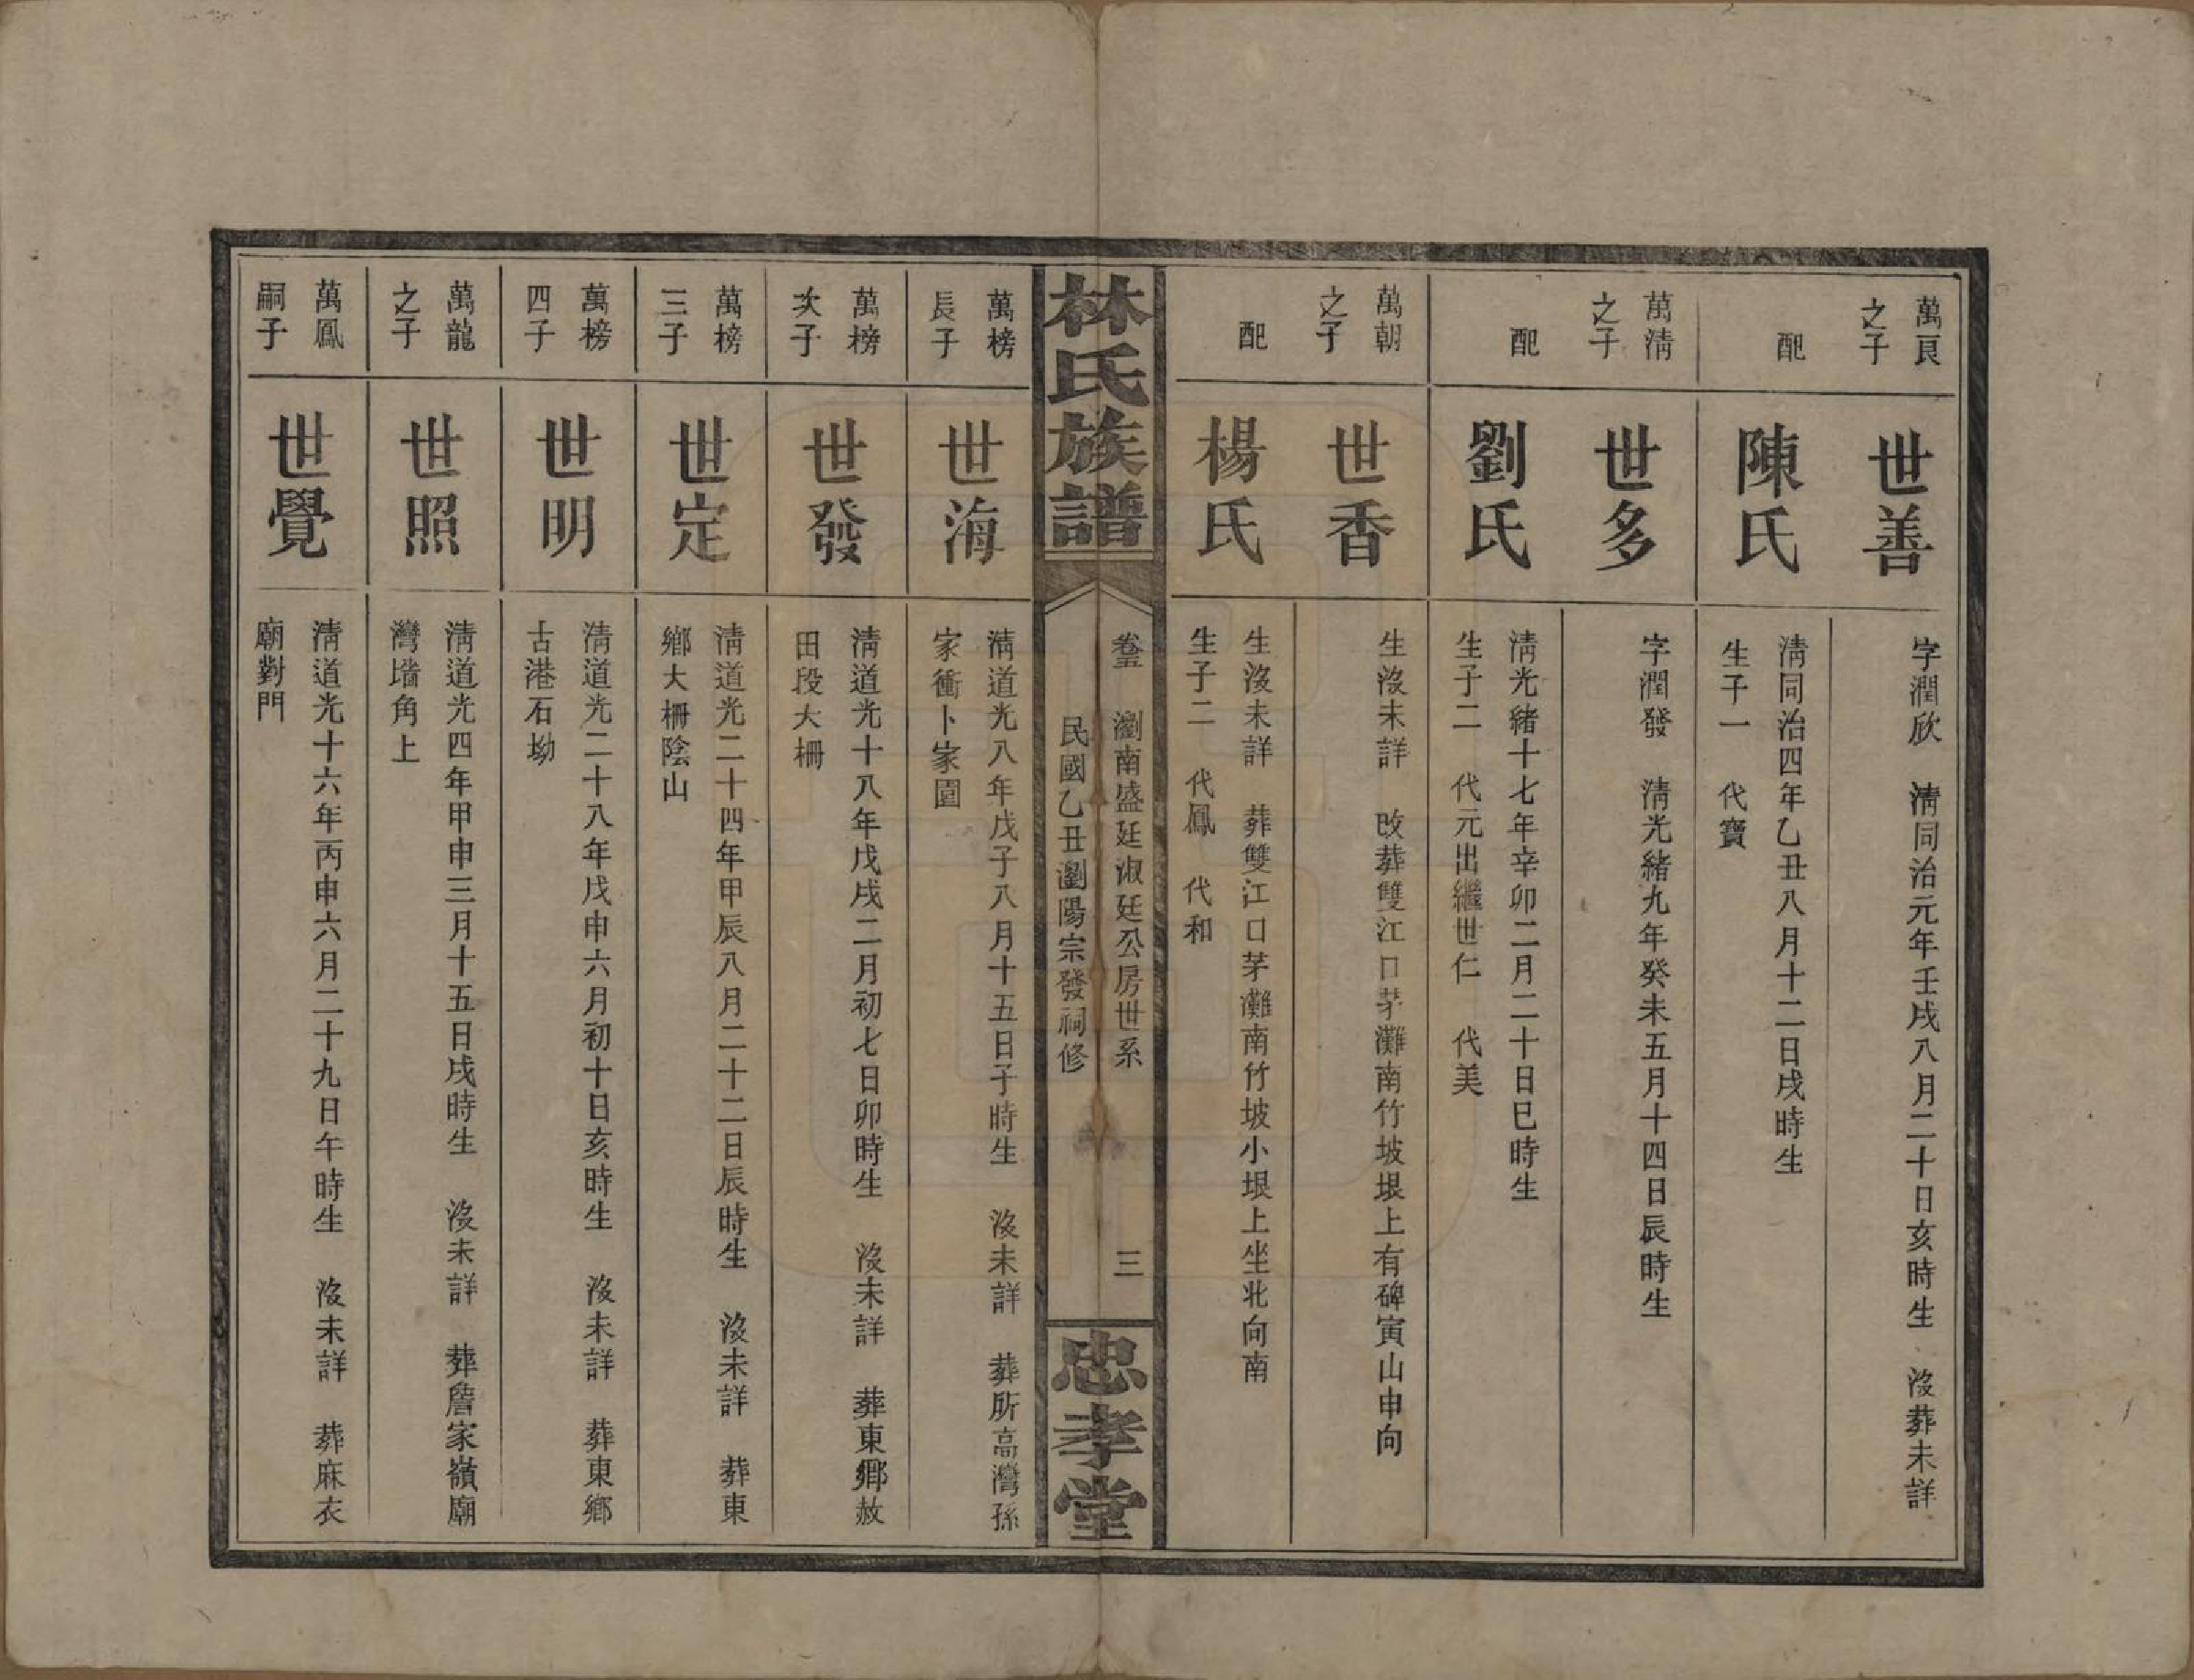 萬良
之子
世善
字潤欣　淸同治元年壬戌八月二十日亥時生　沒葬未詳
配
陳氏
淸同治四年乙丑八月十二日戌時生
生子一　代寶
萬淸
之子
世多
字潤發　淸光緒九年癸未五月十四日辰時生
配
劉氏
淸光緒十七年辛卯二月二十日巳時生
生子二　代元出繼世仁　代美
萬朝
之子
世香
生沒未詳　改葬雙江口茅灘南竹坡垠上有碑寅山申向
配
楊氏
生沒未詳　葬雙江口茅灘南竹坡小垠上坐北向南
生子二　代鳳　代和
林氏族譜
卷五　瀏南盛廷淑廷公房世系　三
民國乙丑瀏陽宗發祠修
忠孝堂
萬榜
長子
世海
淸道光八年戊子八月十五日子時生　沒未詳　葬所高灣孫
家衝卜家園
萬榜
次子
世發
淸道光十八年戊戌二月初七日卯時生　沒未詳　葬東鄉赦
田段大柵
萬榜
三子
世定
淸道光二十四年甲辰八月二十二日辰時生　沒未詳　葬東
鄉大柵陰山
萬榜
四子
世明
淸道光二十八年戊申六月初十日亥時生　沒未詳　葬東鄉
古港石坳
萬龍
之子
世照
淸道光四年甲申三月十五日戌時生　沒未詳　葬詹家嶺廟
灣墻角上
萬鳳
嗣子
世覺
淸道光十六年丙申六月二十九日午時生　沒未詳　葬麻衣
廟對門